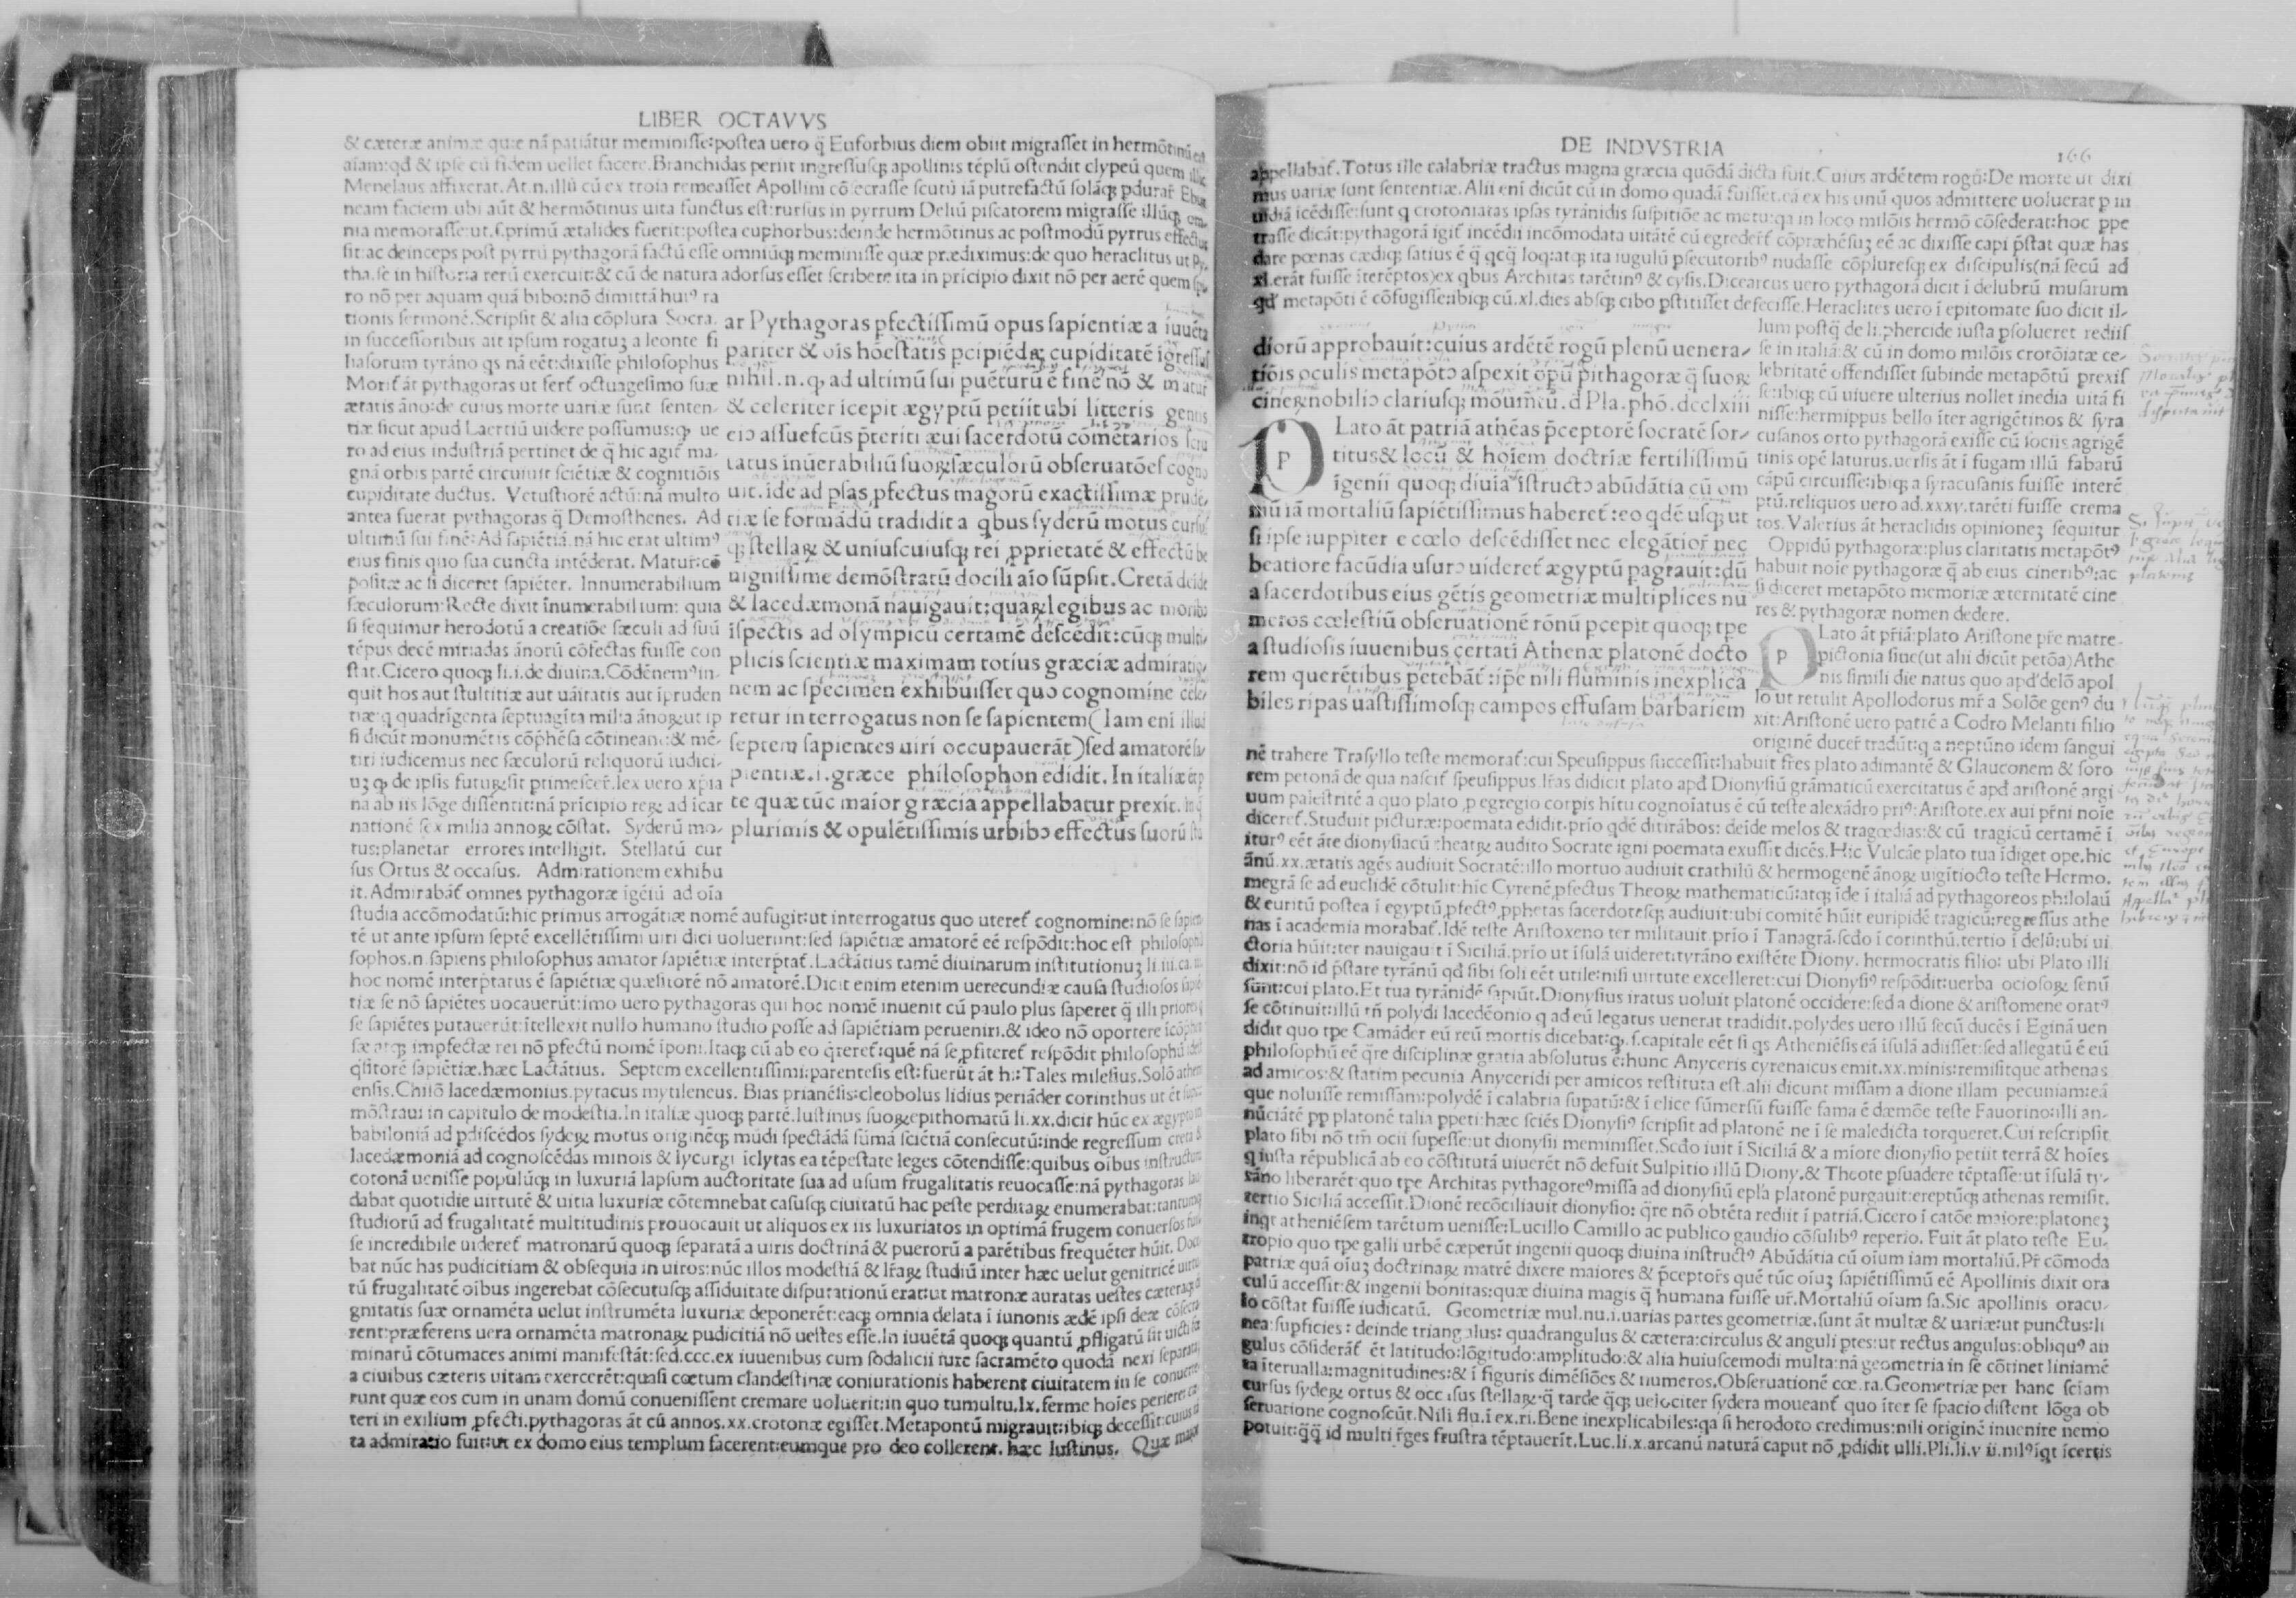 LIBER OCTAVVS
& cæteræ animæ quæ nā patiātur meminiſſe:poſtea uero q̃ Euforbius diem obiit migraſſet in hermōtinū
aīam:qd̄ & ipſe cū fidem uellet facere.Branchidas periit ingreſſuſq; apollinis tēplū oſtendit clypeū quem
Menelaus affixerat.At.n.illū cū ex troia remeaſſet Apollini cōſecraſſe ſcutū iā putrefactū ſolāq; pdurar̄
neam faciem ubi aūt & hermōtinus uita functus eſt:rurſus in pyrrum Deliū piſcatorem migraſſe illūq;
nia memoraſſe:ut.ſ.primū ætalides fuerit:poſtea euphorbus:deinde hermōtinus ac poſtmodū pyrrus effectus
ſit:ac deinceps poſt pyrrū pythagorā factū eſſe omniūq; meminiſſe quæ prædiximus:de quo heraclitus ut
tha.ſe in hiſtoria rerū exercuit:& cū de natura adorſus eſſet ſcribere ita in prīcipio dixit nō per aerē quem
ro nō per aquam quā bibo:nō dimittā huiꝰ ra
tionis ſermonē.Scripſit & alia cōplura Socra.
in ſucceſſoribus ait ipſum rogatuȝ a leonte ſi
liaſorum tyrāno qs nā eēt:dixiſſe philoſophus
Morit̄ āt pythagoras ut fert̄ octuageſimo ſuæ
ætatis āno:de cuius morte uariæ ſunt ſenten-
tiæ ſicut apud Laertiū uidere poſſumus:q; ue
ro ad eius induſtriā pertinet de q̄ hic agit̄ ma-
gnā orbis partē circuiuit ſciētiæ & cognitiōis
cupiditate ductus. Vetuſtiorē actū:nā multo
antea fuerat pythagoras q̃ Demoſthenes. Ad
ultimū ſui finē:Ad ſapiētiā.nā hic erat ultimꝰ
eius finis quo ſua cuncta intēderat. Matur:cō
poſitæ ac ſi diceret ſapiēter. Innumerabilium
ſæculorum:Recte dixit īnumerabilium: quia
ſi ſequimur herodotū a creatiōe ſæculi ad ſuū
tēpus decē miriadas ānorū cōfectas fuiſſe con
ſtat.Cicero quoq; li.i.de diuina.Cōdēnemꝰin-
quit hos aut ſtultitiæ aut uāitatis aut īpruden
tiæ:q quadrīgenta ſeptuagīta milia ānoꝝ:ut ip
ſi dicūt monumētis cōp̄hēſa cōtineant:& mē-
tiri iudicemus nec ſæculorū reliquorū iudici-
uȝ q; de ipſis futuꝝ ſit primeſcer̄.lex uero xp̄ia
na ab iis lōge diſſentit:nā prīcipio reꝝ ad īcar
nationē ſex milia annoꝝ cōſtat. Syderū mo-
tus:planetar errores intelligit. Stellatū cur
ſus Ortus & occaſus. Admirationem exhibu
it.Admirabāt̄ omnes pythagoræ īgēiū ad oīa
ar Pythagoras pfectiſſimū opus ſapientiæ a iuuēta
pariter & oīs hōeſtatis pcipiēdæ cupiditatē īgreſſus
nihil.n.q; ad ultimū ſui puēturū ē finē nō & matur
& celeriter īcepit ægyptū petiit:ubi litteris gentis
eiꝰ aſſuefcūs p̄teriti æui ſacerdotū comētarios
tatus inūerabiliū ſuoꝝ ſæculorū obſeruatōeſ
uit.īde ad pſas pfectus magorū exactiſſimæ prudē,
tiæ ſe formādū tradidit a qbus ſyderū motus
q; ſtellaꝝ & uniuſcuiuſq; rei pprietatē & effectū be
nigniſſime demōſtratū docili aīo ſūpſit.Cretā deīde
& lacedæmonā nauigauit:quaꝝ legibus ac moribꝰ
īſpectis ad olympicū certamē deſcēdit:cūq; multi,
plicis ſcientiæ maximam totius græciæ admiratio,
nem ac ſpecimen exhibuiſſet quo cognomine cēſe,
retur interrogatus non ſe ſapientem(Iam eni illud
ſeptem ſapientes uiri occupauerāt)ſed amatorē
pientiæ.i.græce philoſophon edidit.In italiæ
te quæ tūc maior græcia appellabatur prexit.
plurimis & opulētiſſimis urbibꝰ effectus ſuorū
ſtudia accōmodatū:hic primus arrogātiæ nomē aufugit:ut interrogatus quo uteret̄ cognomine:nō ſe
tē ut ante ipſum ſeptē excellētiſſimi uiri dici uoluerunt:ſed ſapiētiæ amatorē eē reſpōdit:hoc eſt
ſophos.n.ſapiens philoſophus amator ſapiētiæ interp̄tat̄.Lactātius tamē diuinarum inſtitutionuȝ li.iii.ca.
hoc nomē interp̄tatus ē ſapiētiæ quæſitorē nō amatorē.Dicit enim etenim uerecundiæ cauſa ſtudioſos
tiæ ſe nō ſapiētes uocauerūt:imo uero pythagoras qui hoc nomē inuenit cū paulo plus ſaperet q̃ illi priores
ſe ſapiētes putauerūt:ītellexit nullo humano ſtudio poſſe ad ſapiētiam perueniri.& ideo nō oportere
ſæ atq; impfectæ rei nō pfectū nomē īponi.Itaq; cū ab eo q̄reret̄:quē nā ſe pfiteret̄ reſpōdit philoſophū
q̄ſitorē ſapiētiæ.hæc Lactātius. Septem excellentiſſimi:parenteſis eſt:fuerūt āt hi:Tales mileſius.Solō
enſis.Chilō lacedæmonius.pytacus mytileneus. Bias prianēſis:cleobolus lidius periāder corinthus ut ēt
mōſtraui in capitulo de modeſtia.In italiæ quoq; partē.Iuſtinus ſuoꝝ epithomatū li.xx.dicit hūc ex
babiloniā ad pdiſcēdos ſydeꝝ motus originēq; mūdi ſpectādā ſūmā ſciētiā conſecutū:inde regreſſum
lacedæmoniā ad cognoſcēdas minois & lycurgi īclytas ea tēpeſtate leges cōtendiſſe:quibus oībus
cotonā ueniſſe populūq; in luxuriā lapſum auctoritate ſua ad uſum frugalitatis reuocaſſe:nā pythagoras
dabat quotidie uirtutē & uitia luxuriæ cōtemnebat caſuſq; ciuitatū hac peſte perditaꝝ enumerabat:tantumq;
ſtudiorū ad frugalitatē multitudinis prouocauit ut aliquos ex iis luxuriatos in optimā frugem conuerſos
ſe incredibile uideret̄ matronarū quoq; ſeparatā a uiris doctrinā & puerorū a parētibus frequēter hūit.
bat nūc has pudicitiam & obſequia in uiros:nūc illos modeſtiā & lr̄aꝝ ſtudiū inter hæc uelut genitricē
tū frugalitatē oībus ingerebat cōſecutuſq; aſſiduitate diſputationū erat:ut matronæ auratas ueſtes
gnitatis ſuæ ornamēta uelut inſtrumēta luxuriæ deponerēt:eaq; omnia delata ī iunonis ædē ipſi deæ
rent:præferens uera ornamēta matronaꝝ pudicitiā nō ueſtes eſſe.In iuuētā quoq; quantū pfligatū ſit
minarū cōtumaces animi manifeſtāt:ſed.ccc.ex iuuenibus cum ſodalicii iure ſacramēto quodā nexi
a ciuibus cæteris uitam exercerēt:quaſi cœtum clandeſtinæ coniurationis haberent ciuitatem in ſe
runt quæ eos cum in unam domū conueniſſent cremare uoluerit:in quo tumultu.lx.ferme hoīes periere:
teri in exilium pfecti.pythagoras āt cū annos.xx.crotonæ egiſſet.Metapontū migrauit:ibiq; deceſſit:
ta admiratio fuit:ut ex domo eius templum facerent:eumque pro deo collerent. hæc Iuſtinus. Quæ maior
DE INDVSTRIA
166
appellabat̄.Totus ille calabriæ tractus magna græcia quōdā dicta fuit.Cuius ardētem rogū:De morte ut dixi
mus uariæ ſunt ſententiæ.Alii eni dicūt cū in domo quadā fuiſſet.eā ex his unū quos admittere uoluerat p in
uidiā īcēdiſſe:ſunt q crotoniatas ipſas tyrānidis ſuſpitiōe ac metu:qa in loco milōis hermō cōſederat:hoc ppe
traſſe dicāt:pythagorā igit̄ incēdii incōmodata uitāte cū egrederet̄ cōpræhēſuȝ eē ac dixiſſe capi p̄ſtat quæ has
dare pœnas cædiq; ſatius ē q̃ qcq̃ loq:atq; ita iugulū pſecutoribꝰ nudaſſe cōplureſq; ex diſcipulis(nā ſecū ad
xl.erāt fuiſſe īterēptos)ex qbus Architas tarētinꝰ & cyſis.Dicearcus uero pythagorā dicit ī delubrū muſarum
qd̄ metapōti ē cōfugiſſe:ibiq; cū.xl.dies abſq; cibo pſtitiſſet defeciſſe.Heraclites uero ī epitomate ſuo dicit il-
diorū approbauit:cuius ardētē rogū plenū uenera,
tiōis oculis metapōtꝰ aſpexit op̄ū pithagoræ q̃ ſuoꝝ
cineꝝ nobiliꝰ clariuſq; mōuimētū.d Pla.phō.dcclxiii
P
Lato āt patriā athēas p̄ceptorē ſocratē ſor,
titus& locū & hoīem doctrīæ fertiliſſimū
īgenii quoq; diuīa īſtructꝰ abūdātia cū om
niū iā mortaliū ſapiētiſſimus haberet̄:eo qdē uſq; ut
ſi ipſe iuppiter e cœlo deſcēdiſſet nec elegātior̄ nec
beatiore facūdia uſurꝰ uideret̄ ægyptū pagrauit:dū
a ſacerdotibus eius gētis geometriæ multiplices nu
meros cœleſtiū obſeruationē rōnū pcepit quoq; tpe
a ſtudioſis iuuenibus certati Athenæ platonē docto
rem querētibus petebāt̄:ip̄e nili fluminis inexplica
biles ripas uaſtiſſimoſq; campos effuſam barbariem
lum poſtq̃ de li.phercide iuſta pſolueret rediiſ
ſe in italiā:& cū in domo milōis crotōiatæ ce-
lebritatē offendiſſet ſubinde metapōtū prexiſ
ſe:ibiq; cū uiuere ulterius nollet inedia uitā fi
niſſe:hermippus bello īter agrigētinos & ſyra
cuſanos orto pythagorā exiſſe cū ſociis agrigē
tinis opē laturus.uerſis āt ī fugam illū fabarū
cāpū circuiſſe:ibiq; a ſyracuſanis fuiſſe interē
ptū.reliquos uero ad.xxxv.tarēti fuiſſe crema
tos.Valerius āt heraclidis opinioneȝ ſequitur
Oppidū pythagoræ:plus claritatis metapōtꝰ
habuit noīe pythagoræ q̃ ab eius cineribꝰ:ac
ſi diceret metapōto memoriæ æternitatē cine
res & pythagoræ nomen dedere.
P
Lato āt pr̄iā:plato Ariſtone pr̄e matre-
pictonia ſiue(ut alii dicūt petōa)Athe
nis ſimili die natus quo apd̄ delō apol
lo ut retulit Apollodorus mr̄a Solōe genꝰ du
xit:Ariſtonē uero patrē a Codro Melanti filio
originē ducer̄ tradūt:q a neptūno idem ſangui
nē trahere Traſyllo teſte memorat̄:cui Speuſippus ſucceſſit:habuit fr̄es plato adimantē & Glauconem & ſoro
rem petonā de qua naſcit̄ ſpeuſippus lr̄as didicit plato apd̄ Dionyſiū grāmaticū exercitatus ē apd̄ ariſtonē argi
uum paleſtritē a quo plato p egregio corpis hītu cognoīatus ē cū teſte alexādro priꝰ:Ariſtote.ex aui pr̄ni noīe
diceret̄.Studuit picturæ:poemata edidit.prīo qdē ditirābos: deīde melos & tragœdias:& cū tragicū certamē ī
iturꝰ eēt āte dionyſiacū theatꝝ audito Socrate igni poemata exuſſit dicēs.Hic Vulcāe plato tua īdiget ope.hic
ānū.xx.ætatis agēs audiuit Socratē:illo mortuo audiuit crathilū & hermogenē ānoꝝ uigītiocto teſte Hermo.
megrā ſe ad euclidē cōtulit:hīc Cyrenē pfectus Theoꝝ mathematicū:atq; īde ī italiā ad pythagoreos philolaū
& euritū poſtea ī egyptū pfectꝰ pphetas ſacerdoteſq; audiuit:ubi comitē hūit euripidē tragicū:regreſſus athe
nas ī academia morabat̄.Idē teſte Ariſtoxeno ter militauit.prīo ī Tanagrā.ſcdo ī corinthū.tertio ī delū:ubi ui
ctoria hūit:ter nauigauit ī Siciliā.prīo ut īſulā uideret:tyrāno exiſtēte Diony. hermocratis filio: ubi Plato illi
dixit:nō id p̄ſtare tyrānū qd̄ ſibi ſoli eēt utile:niſi uirtute excelleret:cui Dionyſiꝰ reſpōdit:uerba ocioſoꝝ ſenū
ſunt:cui plato.Et tua tyrānidē ſapiūt.Dionyſius iratus uoluit platonē occidere:ſed a dione & ariſtomene oratꝰ
ſe cōtinuit:illū tn̄ polydi lacedēonio q ad eū legatus uenerat tradidit.polydes uero illū ſecū ducēs ī Eginā uen
didit quo tpe Camāder eū reū mortis dicebat:q;.ſ.capitale eēt ſi qs Atheniēſis eā īſulā adiiſſet:ſed allegatū ē eū
philoſophū eē q̄re diſciplinæ gratia abſolutus ē:hunc Anyceris cyrenaicus emit.xx.minis:remiſitque athenas
ad amicos:& ſtatim pecunia Anyceridi per amicos reſtituta eſt.alii dicunt miſſam a dione illam pecuniam:eā
que noluiſſe remiſſam:polydē ī calabria ſupatū:& ī elice ſūmerſū fuiſſe fama ē dæmōe teſte Fauorino:illi an-
nūciātē pp platonē talia ppeti:hæc ſciēs Dionyſiꝰ ſcripſit ad platonē ne ī ſe maledicta torqueret.Cui reſcripſit
plato ſibi nō tm̄ ocii ſupeſſe:ut dionyſii meminiſſet.Scdo iuit ī Siciliā & a miore dionyſio petiit terrā & hoīes
q iuſta rēpublicā ab eo cōſtitutā uiuerēt nō defuit Sulpitio illū Diony.& Theote pſuadere tēptaſſe:ut īſulā ty-
rāno liberarēt quo tpe Architas pythagoreꝰ miſſa ad dionyſiū epl̄a platonē purgauit:ereptūq; athenas remiſit.
tertio Siciliā acceſſit.Dionē recōciliauit dionyſio: q̄re nō obtēta rediit ī patriā.Cicero ī catōe maiore:platoneȝ
inqt atheniēſem tarētum ueniſſe:Lucillo Camillo ac publico gaudio cōſulibꝰ reperio. Fuit āt plato teſte Eu-
tropio quo tpe galli urbē cæperūt ingenii quoq; diuina inſtructꝰ Abūdātia cū oīum iam mortaliū.Pr̄ cōmoda
patriæ quā oīuȝ doctrinaꝝ matrē dixere maiores & p̄ceptor̄s quē tūc oīuȝ ſapiētiſſimū eē Apollinis dixit ora
culū acceſſit:& ingenii bonitas:quæ diuina magis q̃ humana fuiſſe ur̄.Mortaliū oīum ſa.Sic apollinis oracu-
lo cōſtat fuiſſe iudicatū. Geometriæ mul.nu.i.uarias partes geometriæ.ſunt āt multæ & uariæ:ut punctus:li
nea:ſupficies: deinde triangulus: quadrangulus & cætera:circulus & anguli ptes:ut rectus angulus:obliquꝰ an
gulus cōſiderāt̄ ēt latitudo:lōgitudo:amplitudo:& alia huiuſcemodi multa:nā geometria in ſe cōtinet liniamē
ta īterualla:magnitudines:& ī figuris dimēſiōes & numeros.Obſeruationē cœ.ra.Geometriæ per hanc ſciam
curſus ſydeꝝ ortus & occaſus ſtellaꝝ:q̃ tarde q̃q; uelociter ſydera moueant̄ quo īter ſe ſpacio diſtent lōga ob
ſeruatione cognoſcūt.Nili flu.ī ex.ri.Bene inexplicabiles:qa ſi herodoto credimus:nili originē inuenire nemo
potuit:q̃q̃ id multi r̄ges fruſtra tēptauerīt.Luc.li.x.arcanū naturā caput nō pdidit ulli.Pli.li.v ii.nilꝰ iqt īcertis